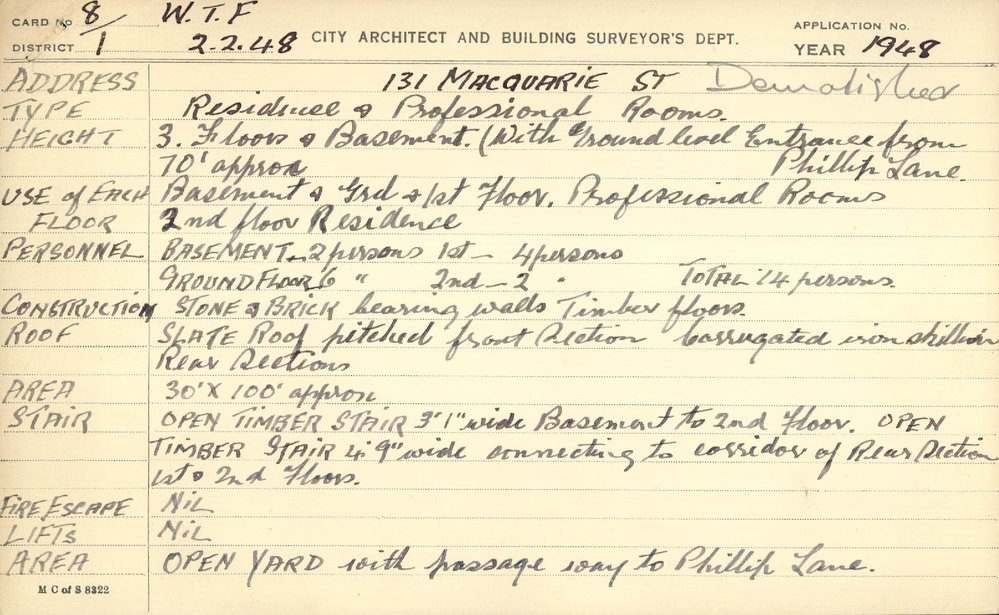 CARD No 8/1 W.T.F APPLICATION No.
DISTRICT 2.2.48 CITY ARCHITECT AND BUILDING SURVEYOR'S DEPT. YEAR 1948
ADDRESS 131 MACQUARIE ST Demolished
TYPE Residence & Professional Rooms.
HEIGHT 3. Floors & Basement. (With Ground level Entrance from
70' approx Phillip Lane.
USE of EACH Basement & Grd & 1st Floor. Professional Rooms
FLOOR 2nd floor Residence
PERSONNEL BASEMENT - 2 persons 1st - 4 persons
GROUND FLOOR 6 " 2nd - 2 " TOTAL 14 persons.
CONSTRUCTION STONE & BRICK bearing walls Timber floors.
ROOF SLATE Roof pitched front Section Corrugated iron skillion
Rear Sections
AREA 30' X 100' approx
STAIR OPEN TIMBER STAIR 3' 1" wide Basement to 2nd Floor. OPEN
TIMBER STAIR 4' 9" wide connecting to corridor of Rear Section
1st & 2nd Floors.
FIRE ESCAPE NIL
LIFTS NIL
AREA OPEN YARD with passage way to Phillip Lane.
M C of S 8322